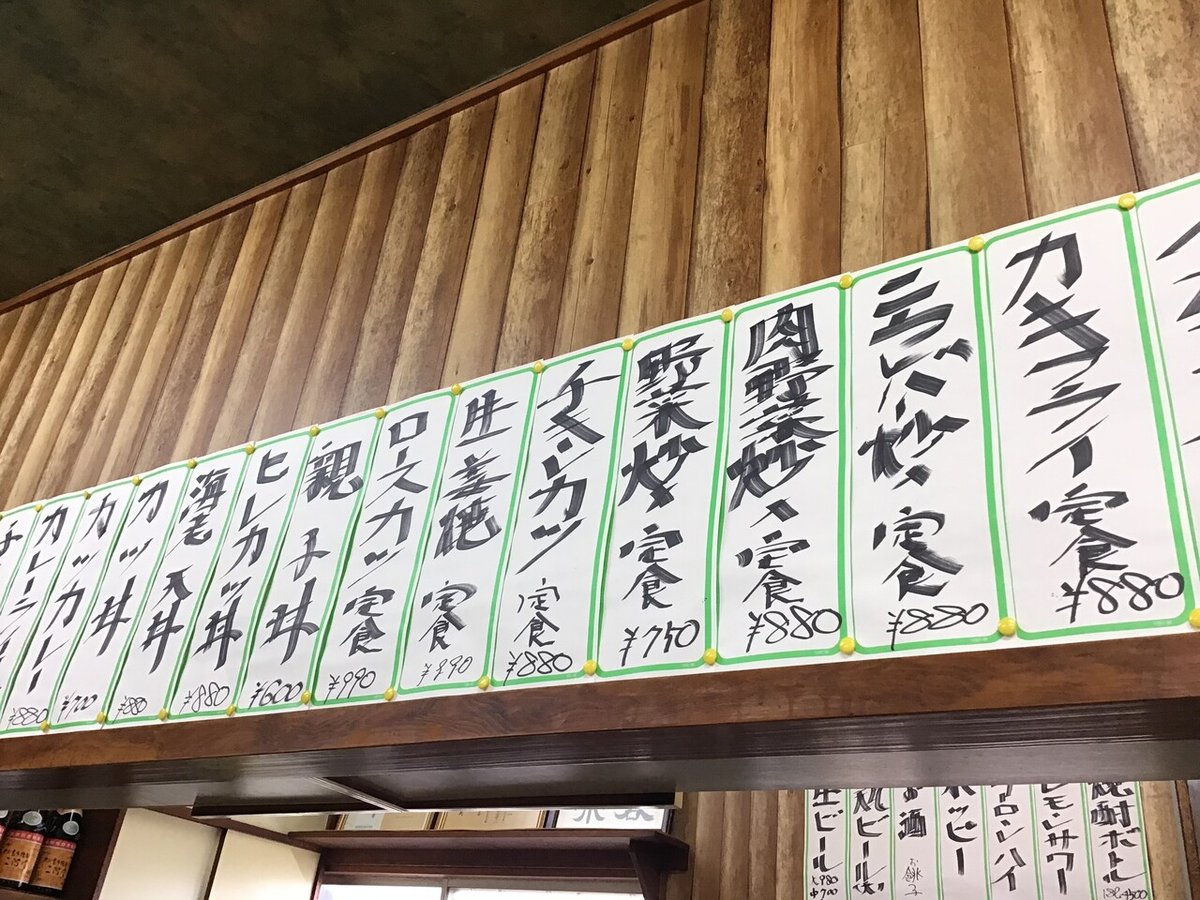 カキフライ定食
¥880
ニラレバー炒メ定食
¥880
肉野菜炒メ定食
¥880
野菜炒メ定食
¥750
チキンカツ定食
¥880
生姜焼定食
ロースカツ定食
¥990
親子丼
¥600
ヒレカツ丼
¥880
海老天丼
¥880
カツ丼
¥700
カツカレー
¥880
カレーライ
焼酎ボトル
レモンサワー
ロンハイ
ホッピー
お酒
お銚子
ビール
生ビール